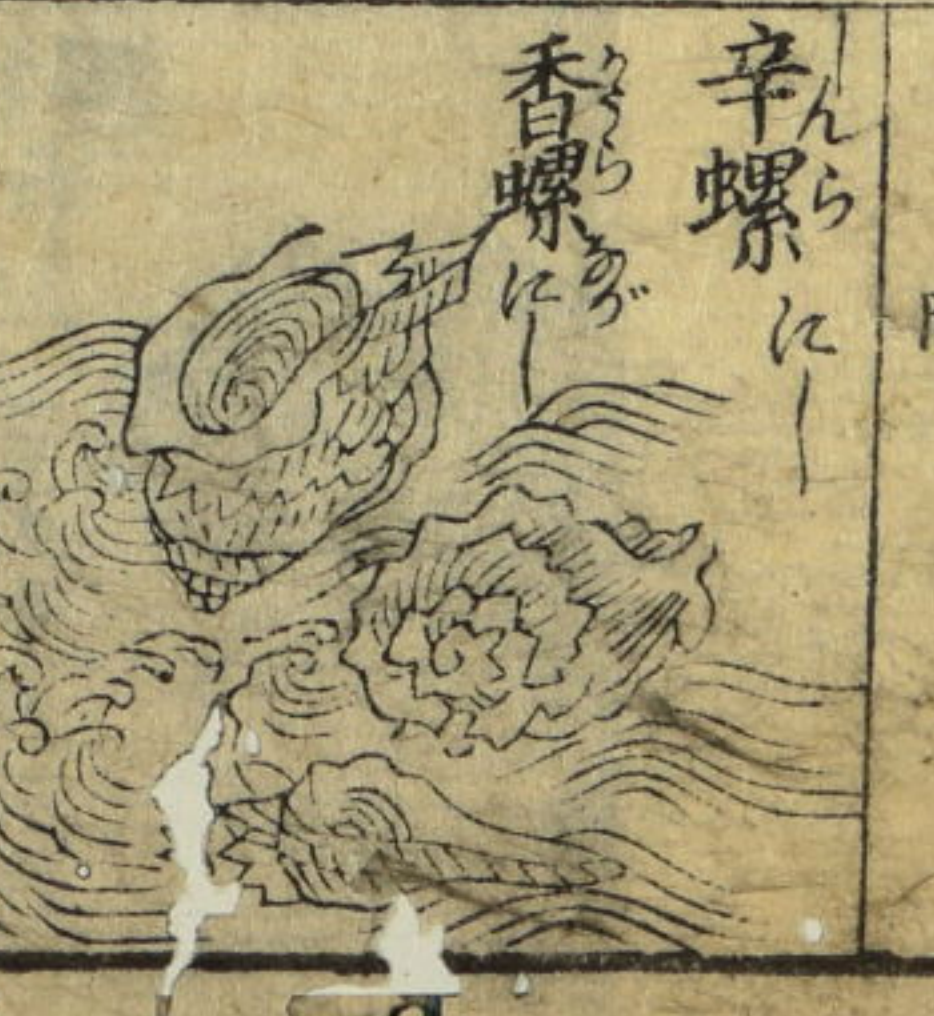 辛螺
しんら
にし
香螺
かうら
ながにし